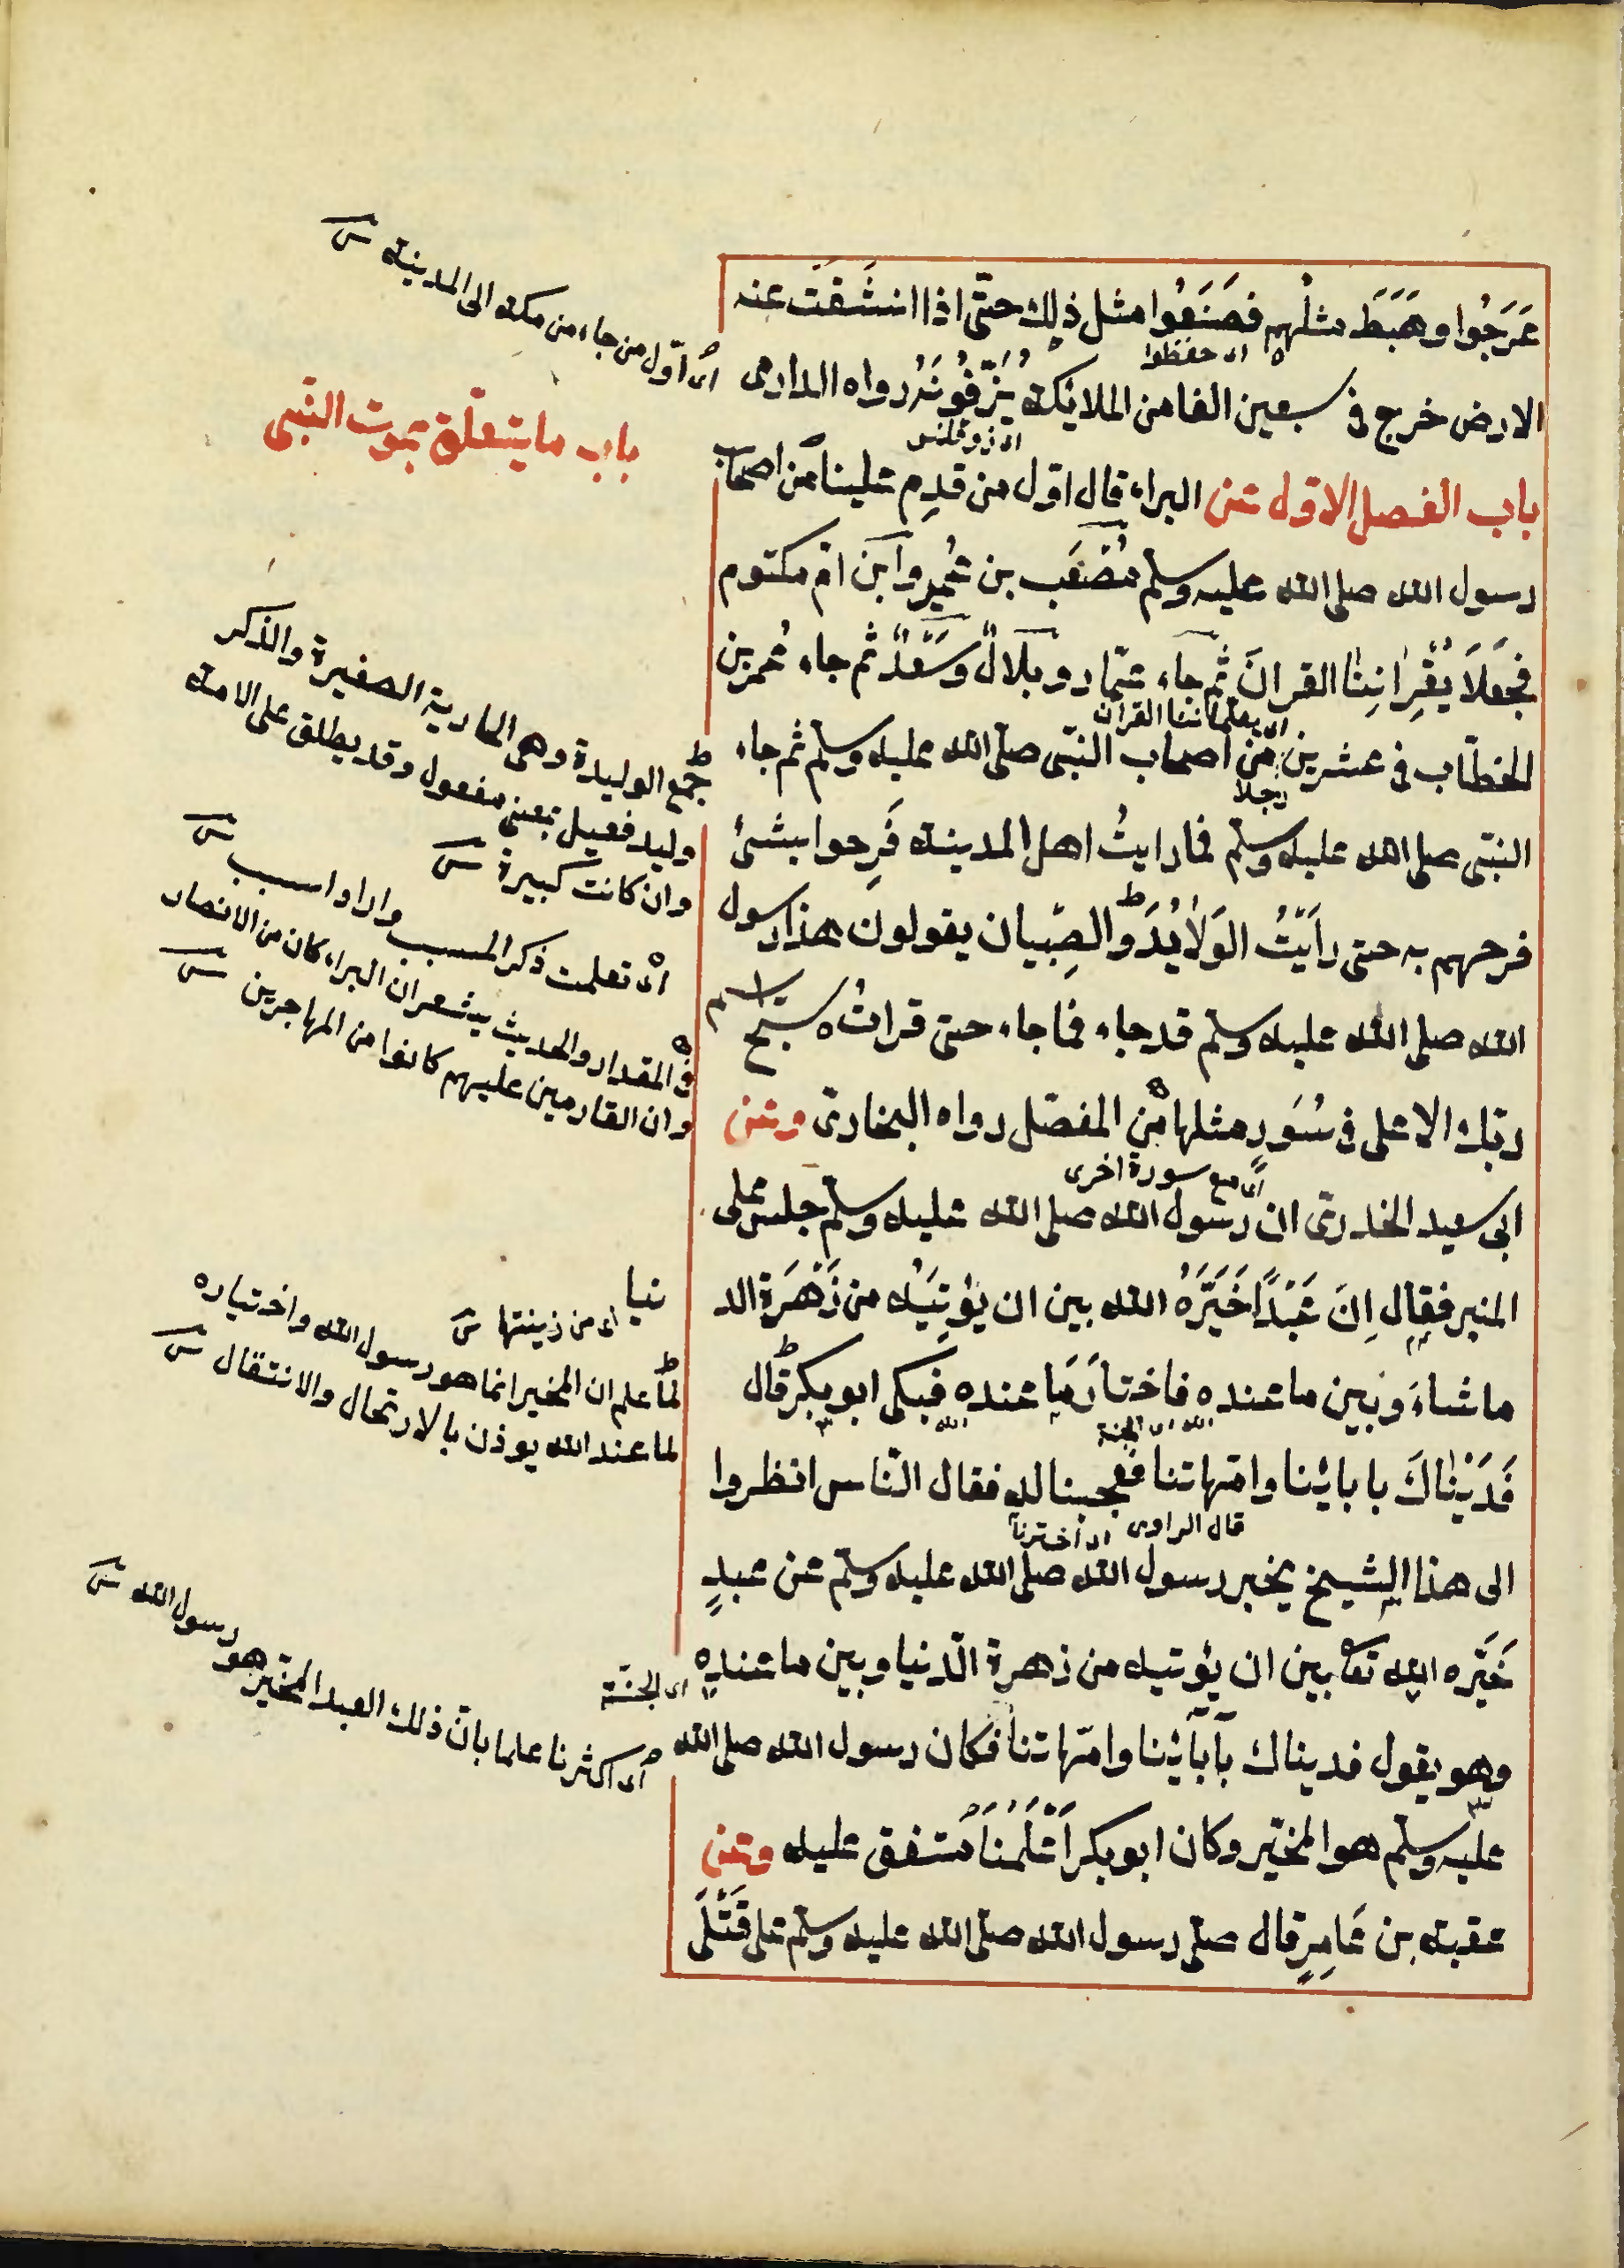 عَرَجُوا وهَبَطَ مثلُهم فصَنَعُوا مثل ذلِك حتّى اذا انشَقّت عنه
اى حفظوا
الارض خرج فى سبعين الفا من الملائكة يَزُفُّونَهُ رواه الدارمى
باب الفصل الاوّل عن البراء قال اوّل من قدِم علينا من اصحاب
رسول الله صلى الله عليه وسلم مُصْعَب بن عُمير وابن امّ مكتوم
فجَعَلَا يُقْرِانِنَا القرانَ ثم جاء عمّار وبلالٌ وسَعْدٌ ثم جاء عُمر بن
اى يعلماننا القران
الخطّاب فى عشرين من اصحاب النبّى صلّى الله عليه وسلم ثم جاء
رجلا
النبّى صلى الله عليه وسلم فما رايتُ اهل المدينة فَرِحوا بشئ
فرحهم به حتى رأيْتُ الوَلائِدَ والصِبيان يقولون هذا رسول
الله صلى الله عليه وسلم قد جاء فما جاء حتى قراتُ سبّح اسم
ربّك الاعلى فى سُوَرٍ مثلها من المفصّل رواه البخارى وعن
اى مع سورة اخرى
ابى سعيد الخدرىّ ان رسول الله صلى الله عليه وسلم جلس على
المنبر فقال اِنَ عَبْدًا خَيَّرَهُ الله بين ان يؤتِيَه من زَهْرَة الد
ما شاءَ وبين ما عنده فاختارَ ما عنده فبكى ابو بكر قال
الله اى الجنة
الله
فَدَيْنَاكَ باٰبائنا وامّهاتنا فعجبنا له فقال النّاس انظروا
قال الراوى
الى هذا الشيخ يخبر رسول الله صلى الله عليه وسلم عن عبدٍ
خَيَّره الله تعا بين ان يؤتيه من زهرة الدّنيا وبين ما عنده
اى الجنّة
وهو يقول فديناك بآبآئنا وامّهاتنا فكان رسول الله صلى الله
عليه وسلم هو المخيّر وكان ابو بكر اَعْلَمُنَا متفق عليه وعن
عقبة بن عَامِرٍ قال صلى رسول الله صلى الله عليه وسلم على قَتْلَى
اى اوّل من جاء من مكة الى المدينة
باب ما يتعلّق بموت النّبى
جمع الوليدة وهى الجارية الصغيرة والذكر
وليد فعيل بمعنى مفعول وقد يطلق على الامة
وان كانت كبيرة
اى تعلمت ذكر المسبب واراد السبب
فى المقدار والحديث يشعر ان البراء كان من الانصار
وان القادمين عليهم كانوا من المهاجرين
نيا
اى من زينتها
لما علم ان المخير انما هو رسول الله واختياره
لما عند الله يوذن بالارتحال والانتقال
اى اكثرنا علما بان ذلك العبد المخيّر هو رسول الله